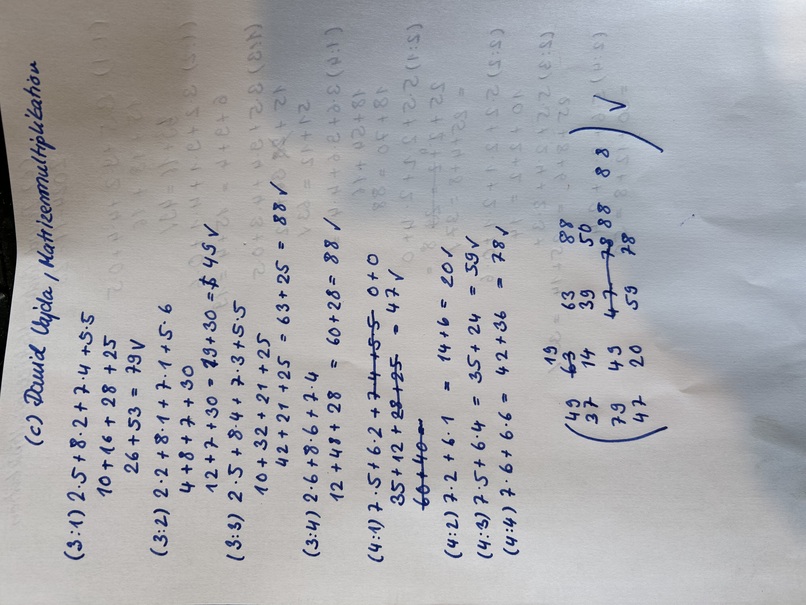 (c) David Vajda, Matrizenmultiplikation
(3:1) 2·5+8·2+7·4+5·5
10+16+28+25
26+53 = 79✓
(3:2) 2·2+8·1+7·1+5·6
4+8+7+30
12+7+30 = 19+30 = 49 ✓
(3:3) 2·5+8·4+7·3+5·5
10+32+21+25
42+21+25 = 63+25 = 88 ✓
(3:4) 2·6+8·6+7·4
12+48+28 = 60+28 = 88 ✓
(4:1) 7·5+6·2+7·4+5·5 0+0
35+12+28+25 = 47✓
60+40=
(4:2) 7·2+6·1 = 14+6 = 20✓
(4:3) 7·5+6·4 = 35+24 = 59✓
(4:4) 7·6+6·6 = 42+36 = 78✓
19
49 63 63 88
37 14 39 50
79 49 47 78 88 88 ✓
47 20 59 78